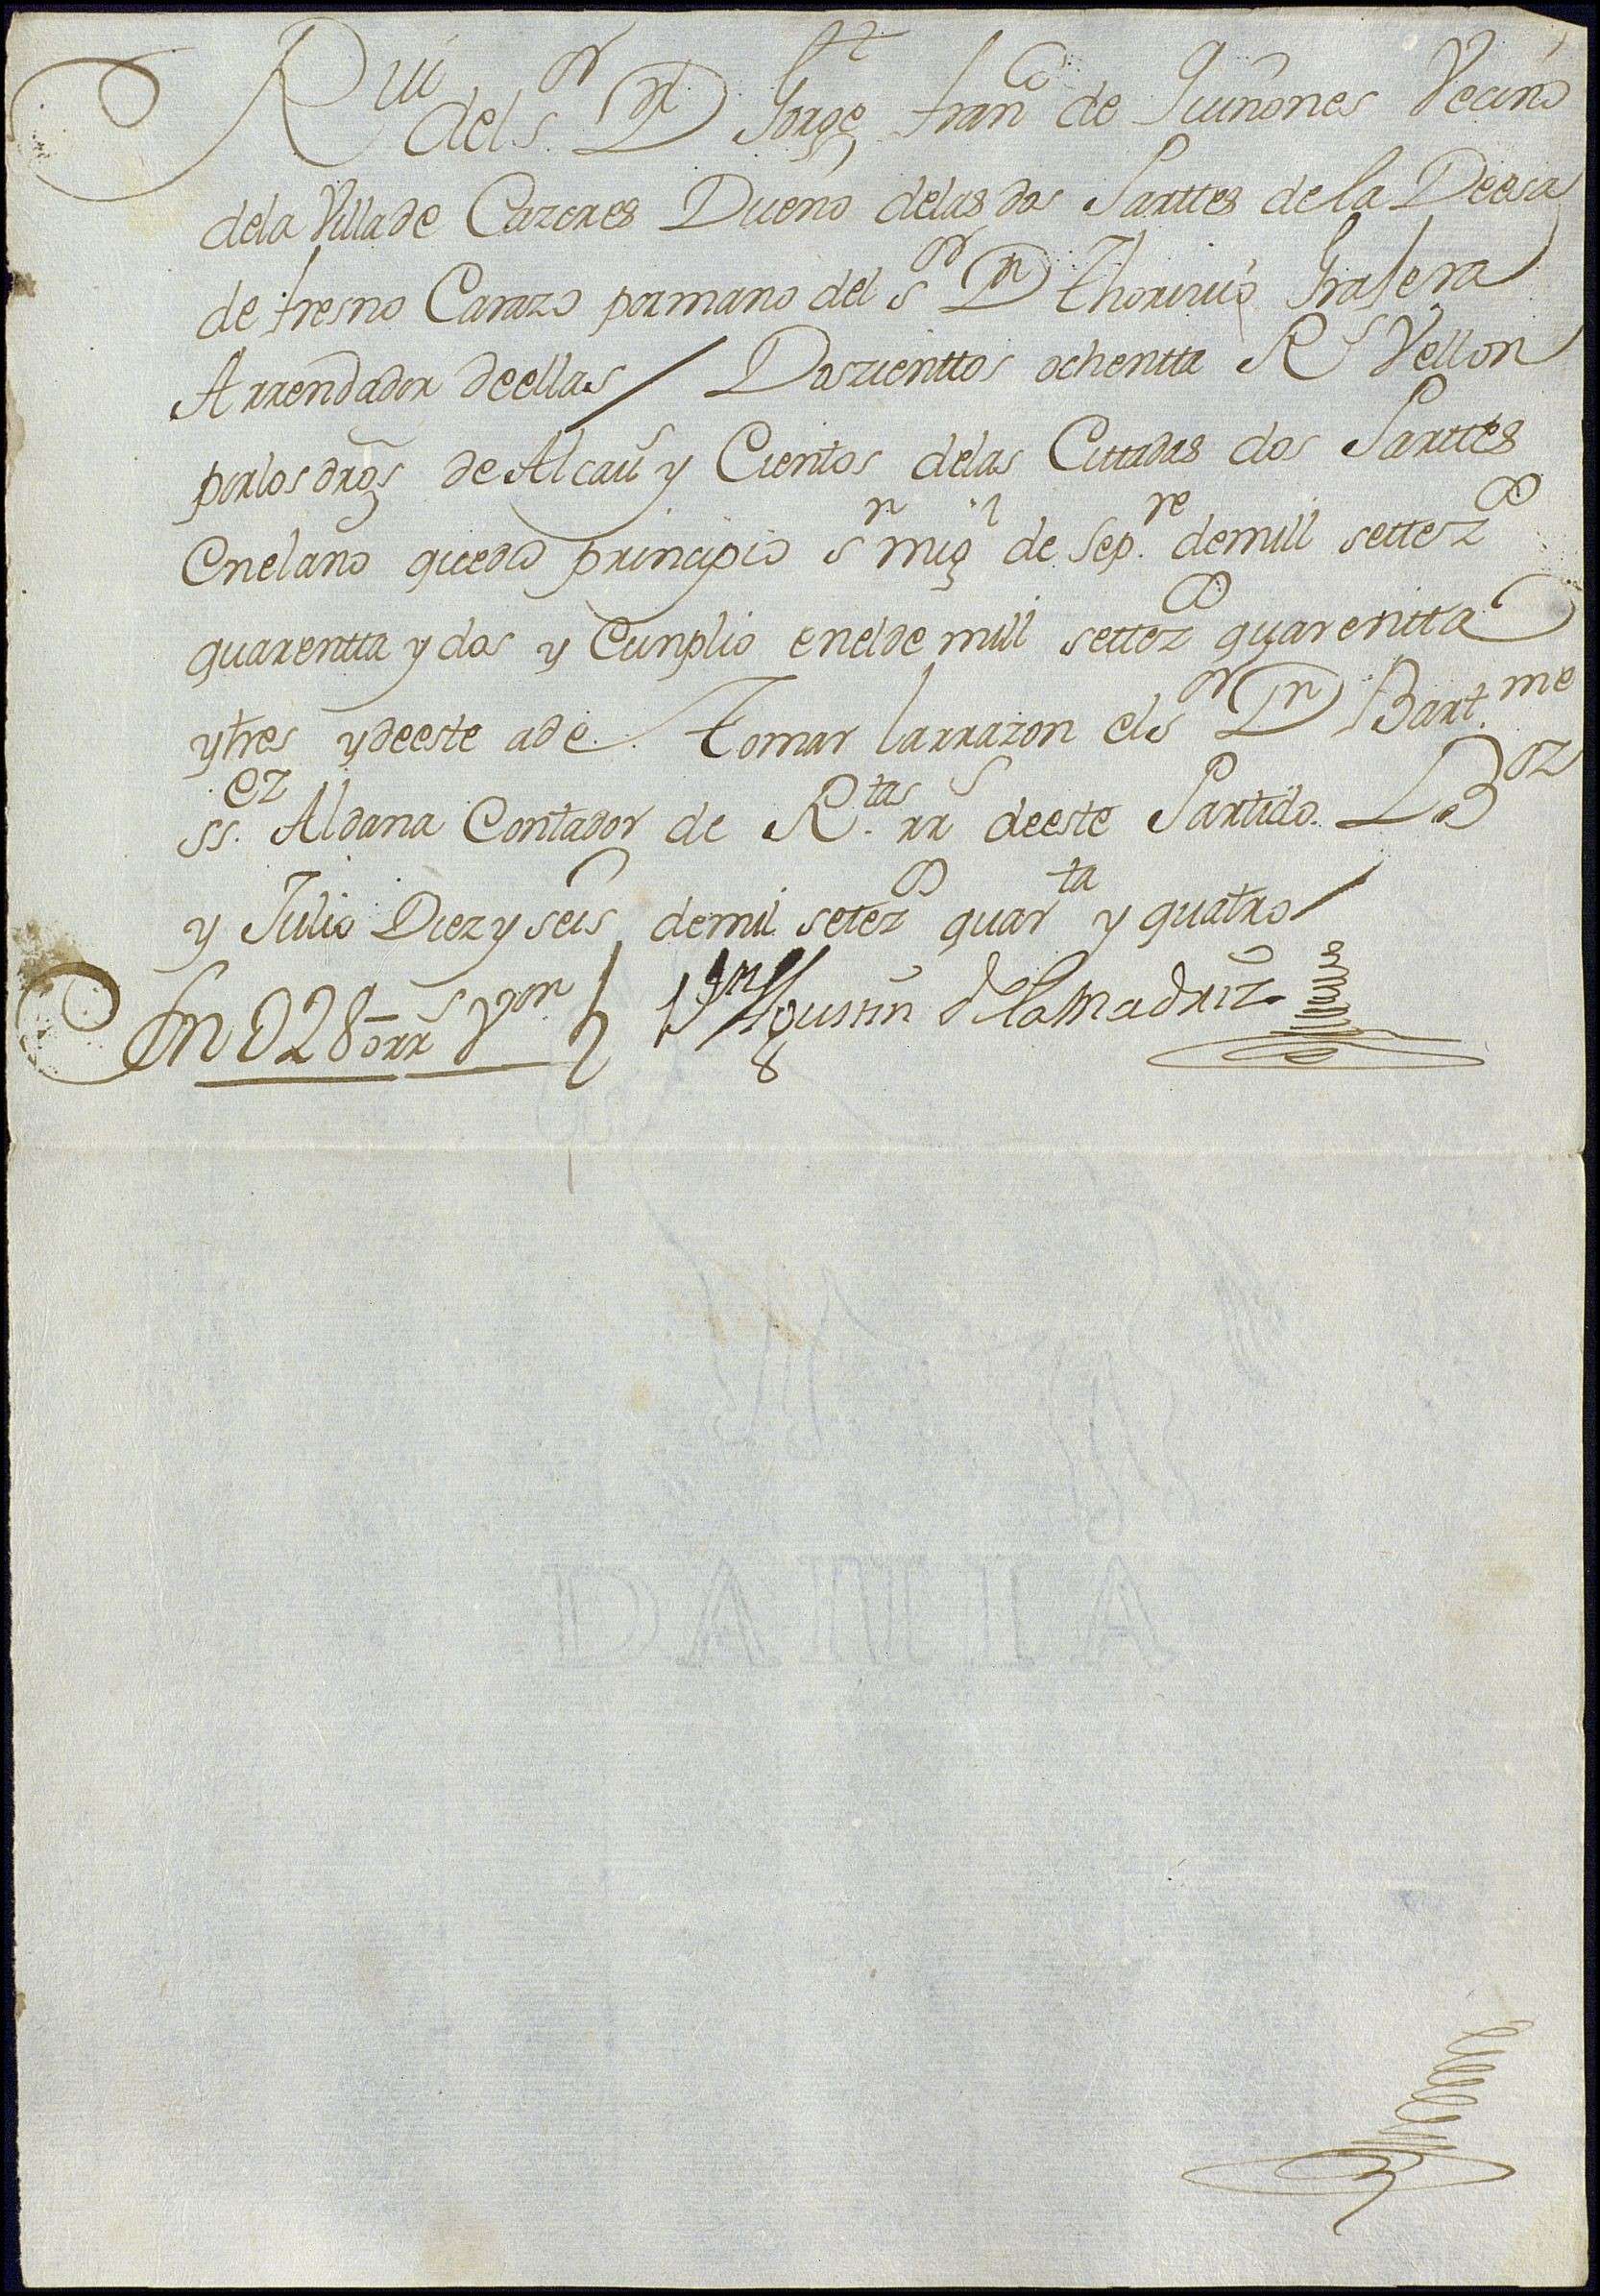 Rui del s.or Dn Jorge Fran.co de Quiñones Vecino
dela Villa de Cazeres Dueño delas dos Parttes de la Deesa
de fresno Carazo por mano del s.or Dn
Arrendador de ellas / Doszienttos ochentta Rs Vellon
por los dros de Alcaus y Cientos delas Cittadas dos Parttes
en el año que dio principio sn migl de Sep.re de mill settezos
quarentta y dos y Cunplio en el de mill settezos quarentta
y tres y de este ade tomar la rrazon el sor Dn Bart.me
ss.ez Aldana Contador de R.tas rrs de este Partido
y Julio Diez y seis de mil setezos quarta y quatro /
Son 0280 rrs Von Dn Agustin de la Madriz
DAMIA